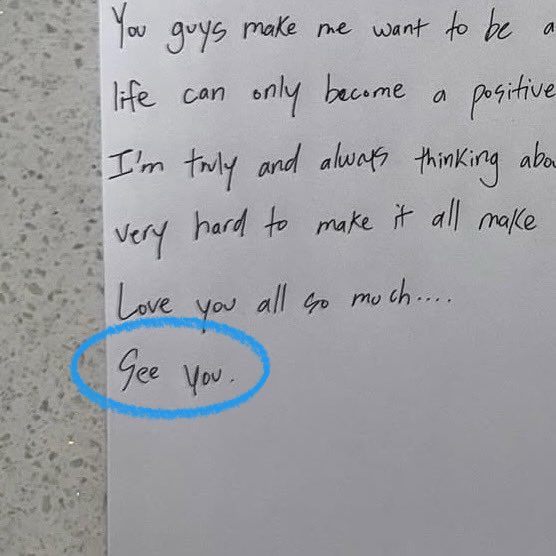 You guys make me want to be a
life can only become a positive
I'm truly and always thinking abou
very hard to make it all make
Love you all so much....
See you.